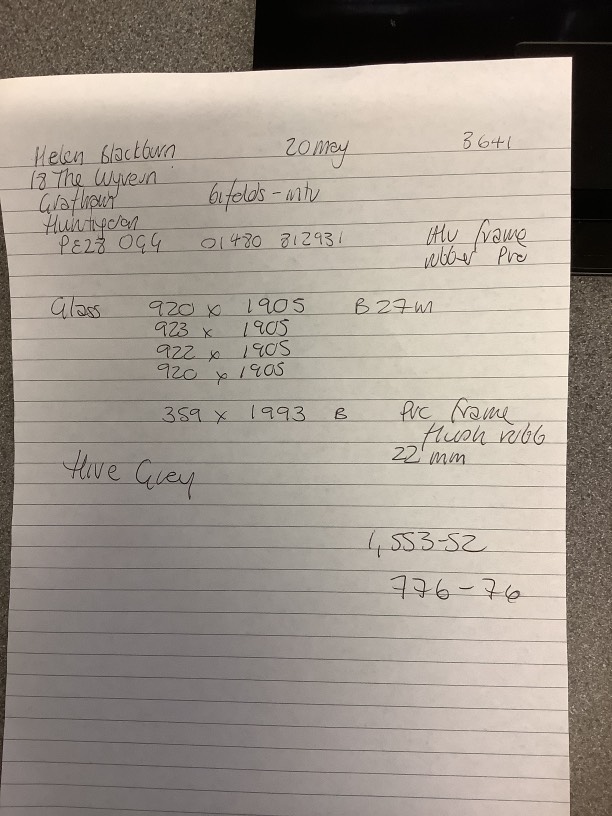 Helen Blackburn 20 May 3641
18 The Wyvern
Grafham Bifolds - intu
Huntigdon
PE28 0GG 01480 812931 Alu frame
rubber Pvc
Glass 920 x 1905 B 27m
923 x 1905
922 x 1905
920 x 1905
359 x 1993 B Pvc frame
flush rubb
22 mm
Hive Grey
1,553-52
776-76